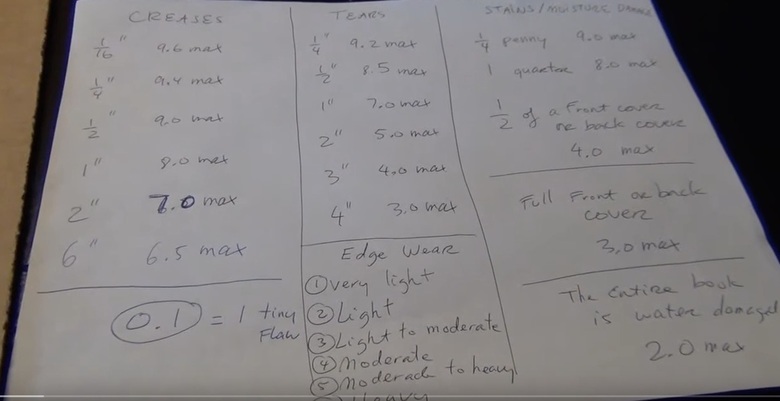 CREASES
1/16" 9.6 max
1/4" 9.4 max
1/2" 9.0 max
1" 8.0 max
2" 7.0 max
6" 6.5 max
0.1 = 1 tiny
Flaw
TEARS
1/4" 9.2 max
1/2" 8.5 max
1" 7.0 max
2" 5.0 max
3" 4.0 max
4" 3.0 max
Edge Wear
① very light
② Light
③ Light to moderate
④ Moderate
⑤ Moderate to heavy
Heavy
STAINS/MOISTURE DAMAGE
1/4 penny 9.0 max
1 quarter 8.0 max
1/2 of a Front cover
or back cover
4.0 max
Full Front or back
cover
3.0 max
The Entire book
is water damaged
2.0 max